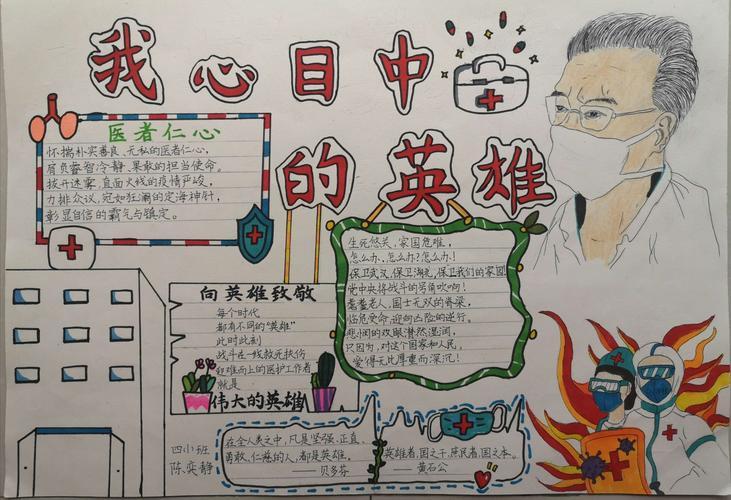 我心目中
的英雄
医者仁心
怀揣朴实善良、无私的医者仁心,
肩负睿智冷静、果敢的担当使命。
拨开迷雾,直面火线的疫情严峻,
力排众议,宛如狂澜的定海神针,
彰显自信的霸气与镇定。
向英雄致敬
每个时代
都有不同的“英雄”
此时此刻
战斗在一线救死扶伤
和难而上的医护工作者
就是
伟大的英雄
生死攸关,家国危难,
怎么办,怎么办?怎么办!
保卫武汉,保卫湖北,保卫我们的家园
党中央将战斗的号角吹响!
耄耋老人,国士无双的脊梁,
临危受命,迎向凶险的逆行。
悲悯的双眼潸然湿润,
只因为,对这个国家和人民,
爱得无比厚重而深沉!
四小班
陈奕静
在全人类之中,凡是坚强、正直、
勇敢、仁慈的人,都是英雄。
——贝多芬
英雄者,国之干,庶民者,国之本。
——黄石公